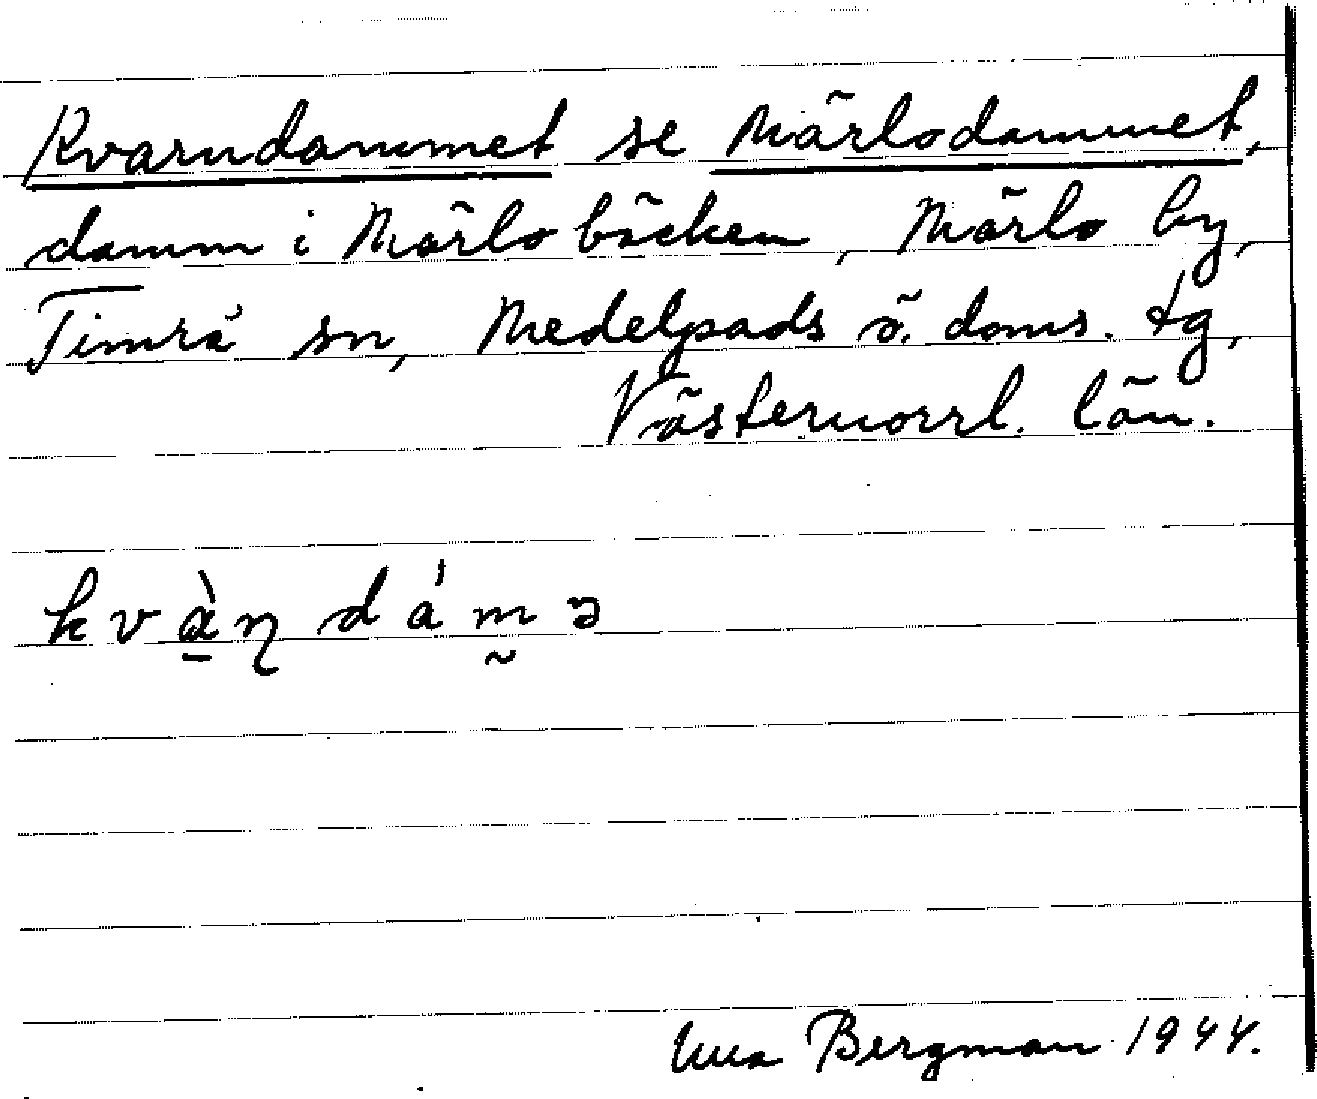 Kvarndammet se Märlodammet,
damm i Märlobäcken, Märlo by,
Timrå sn, Medelpads ö. doms. tg,
Västernorrl. län.
kvàṇdámə
Bergman 1944.